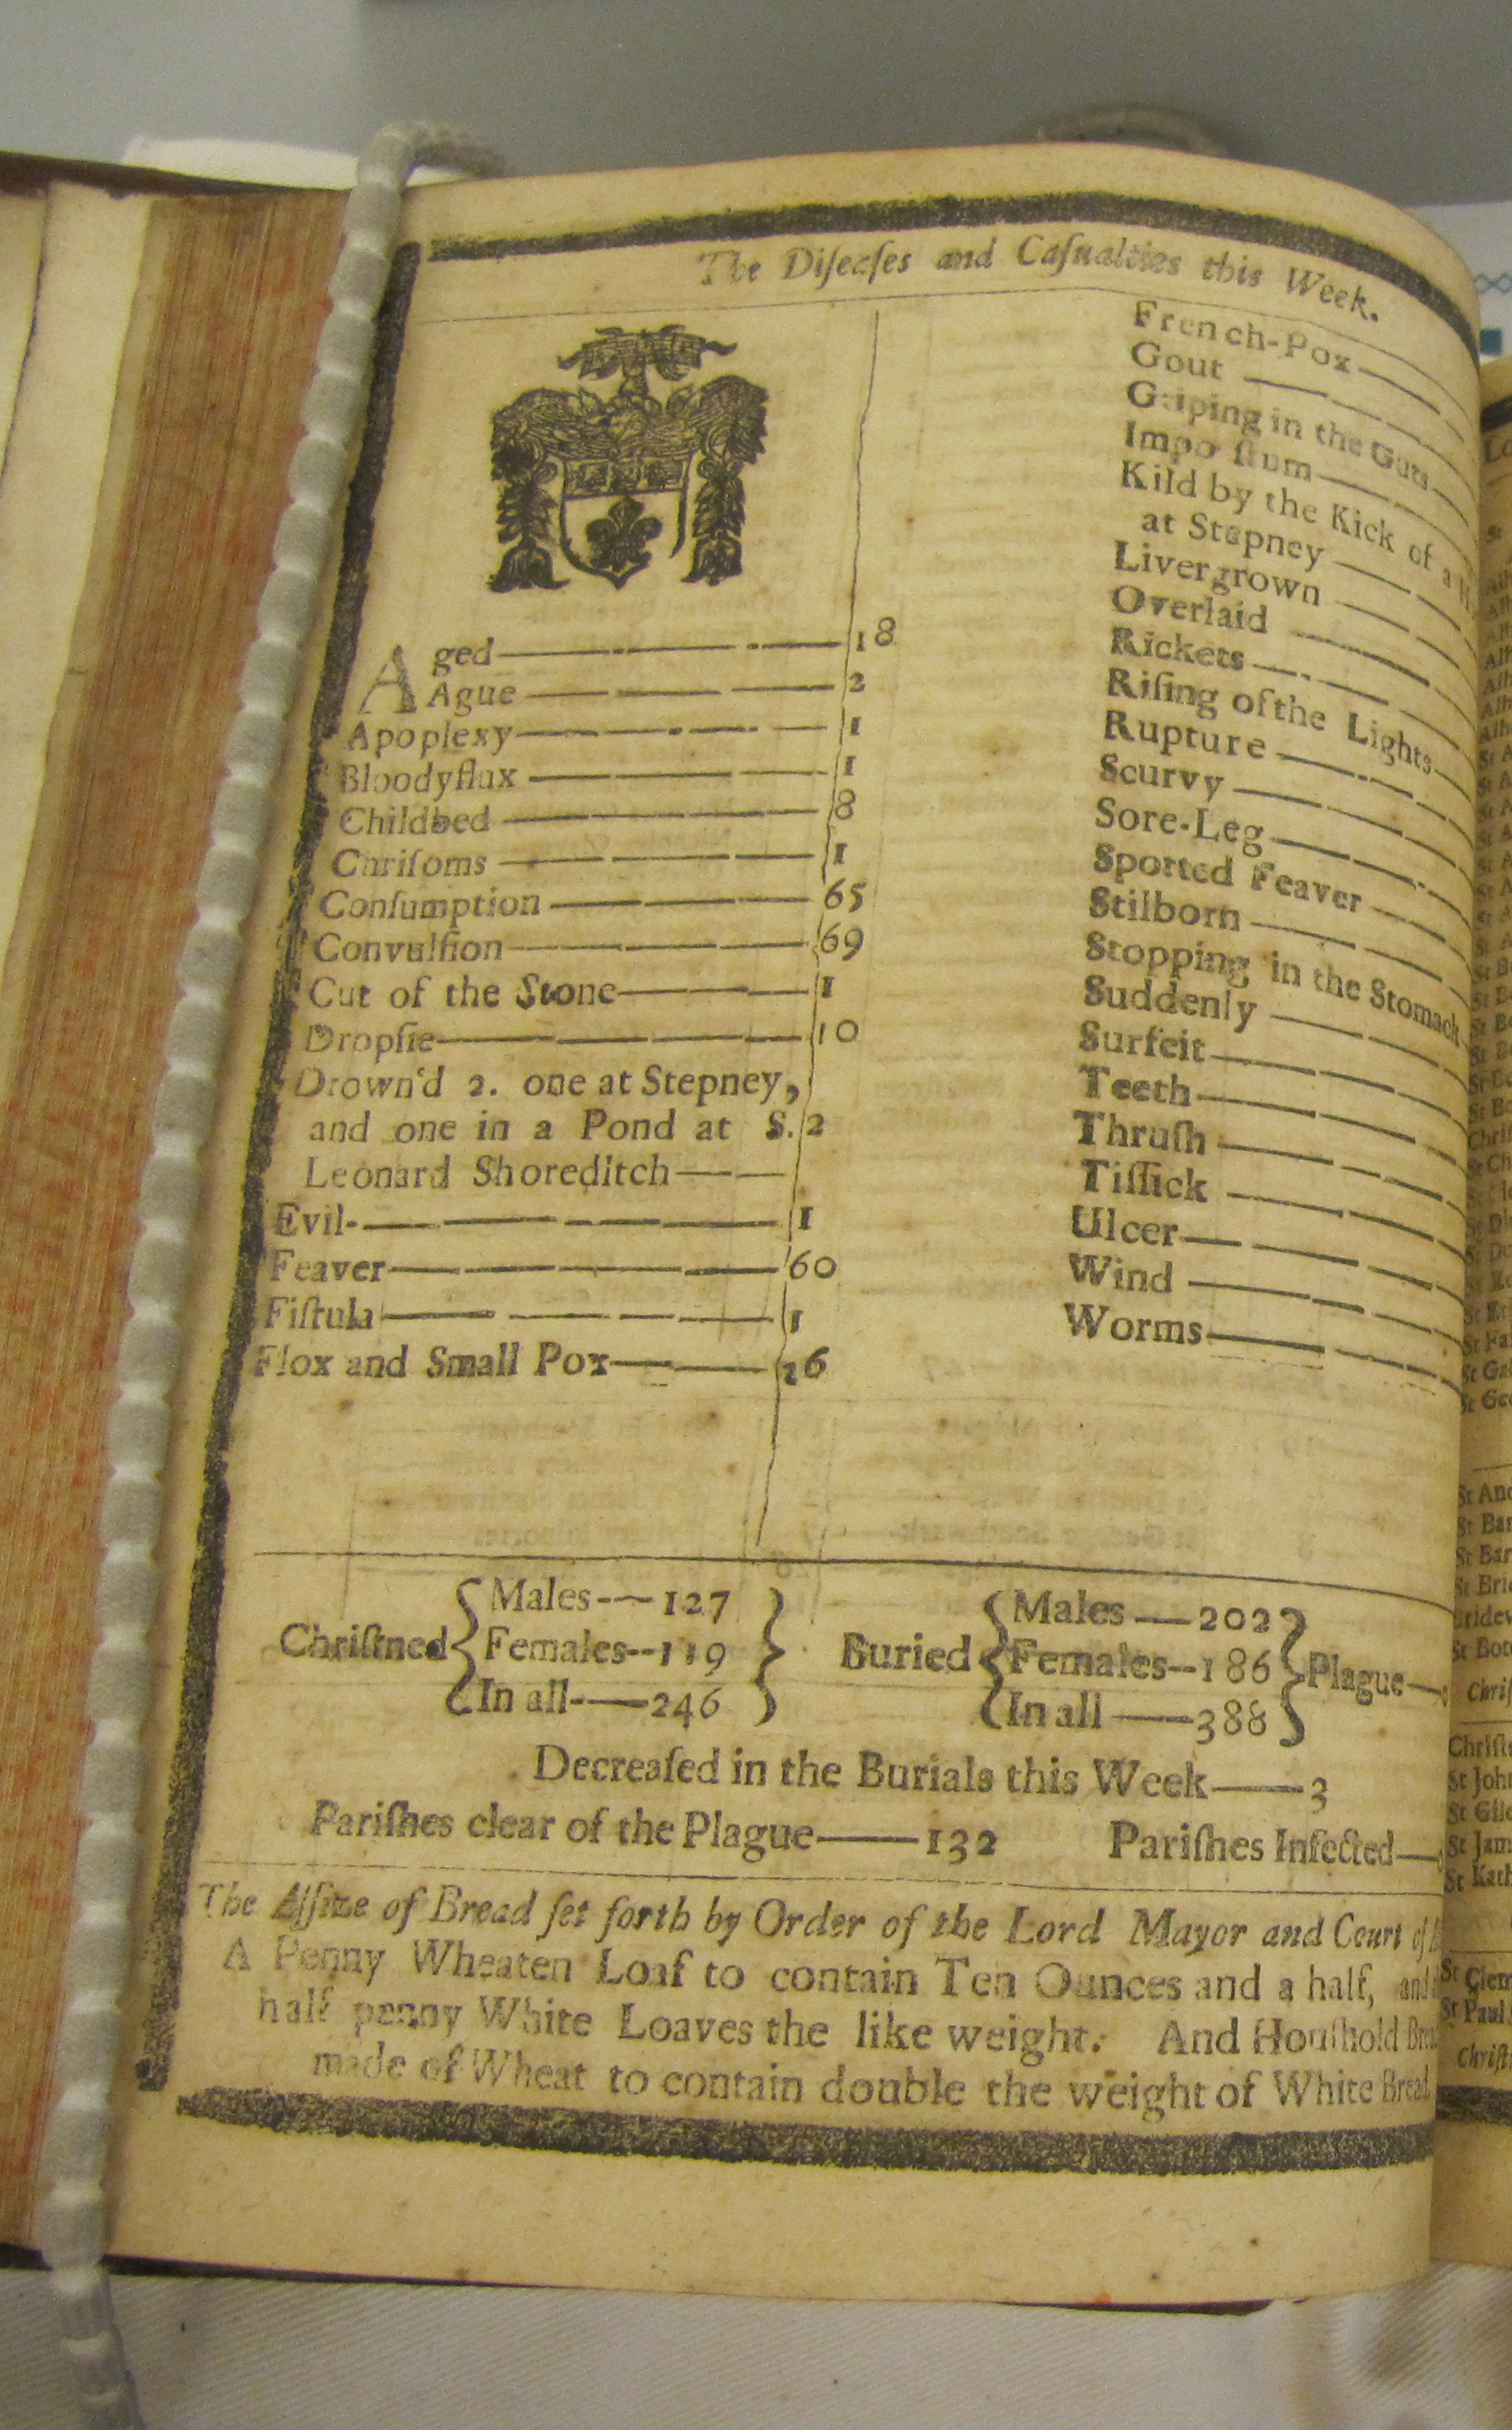 The Diſeaſes and Caſualties this Week.
Aged 18
Ague 2
Apoplexy 1
Bloodyflux 1
Childbed 8
Chriſoms 1
Conſumption 65
Convulſion 69
Cut of the Stone 1
Dropſie 10
Drown'd 2. one at Stepney,
and one in a Pond at S. 2
Leonard Shoreditch
Evil 1
Feaver 60
Fiſtula 1
Flox and Small Pox 16
French-Pox
Gout
Griping in the Guts
Impoſtum
Kild by the Kick of a
at Stepney
Livergrown
Overlaid
Rickets
Riſing of the Lights
Rupture
Scurvy
Sore-Leg
Spotted Feaver
Stilborn
Stopping in the Stomack
Suddenly
Surfeit
Teeth
Thruſh
Tiſſick
Ulcer
Wind
Worms
Chriſtned { Males 127
Females 119
In all 246 }
Buried { Males 202
Females 186
In all 388 } Plague
Decreaſed in the Burials this Week 3
Pariſhes clear of the Plague 132 Pariſhes Infected
The Aſſize of Bread ſet forth by Order of the Lord Mayor and Court of
A Penny Wheaten Loaf to contain Ten Ounces and a half, and
half penny White Loaves the like weight. And Houſhold
made of Wheat to contain double the weight of White Bread